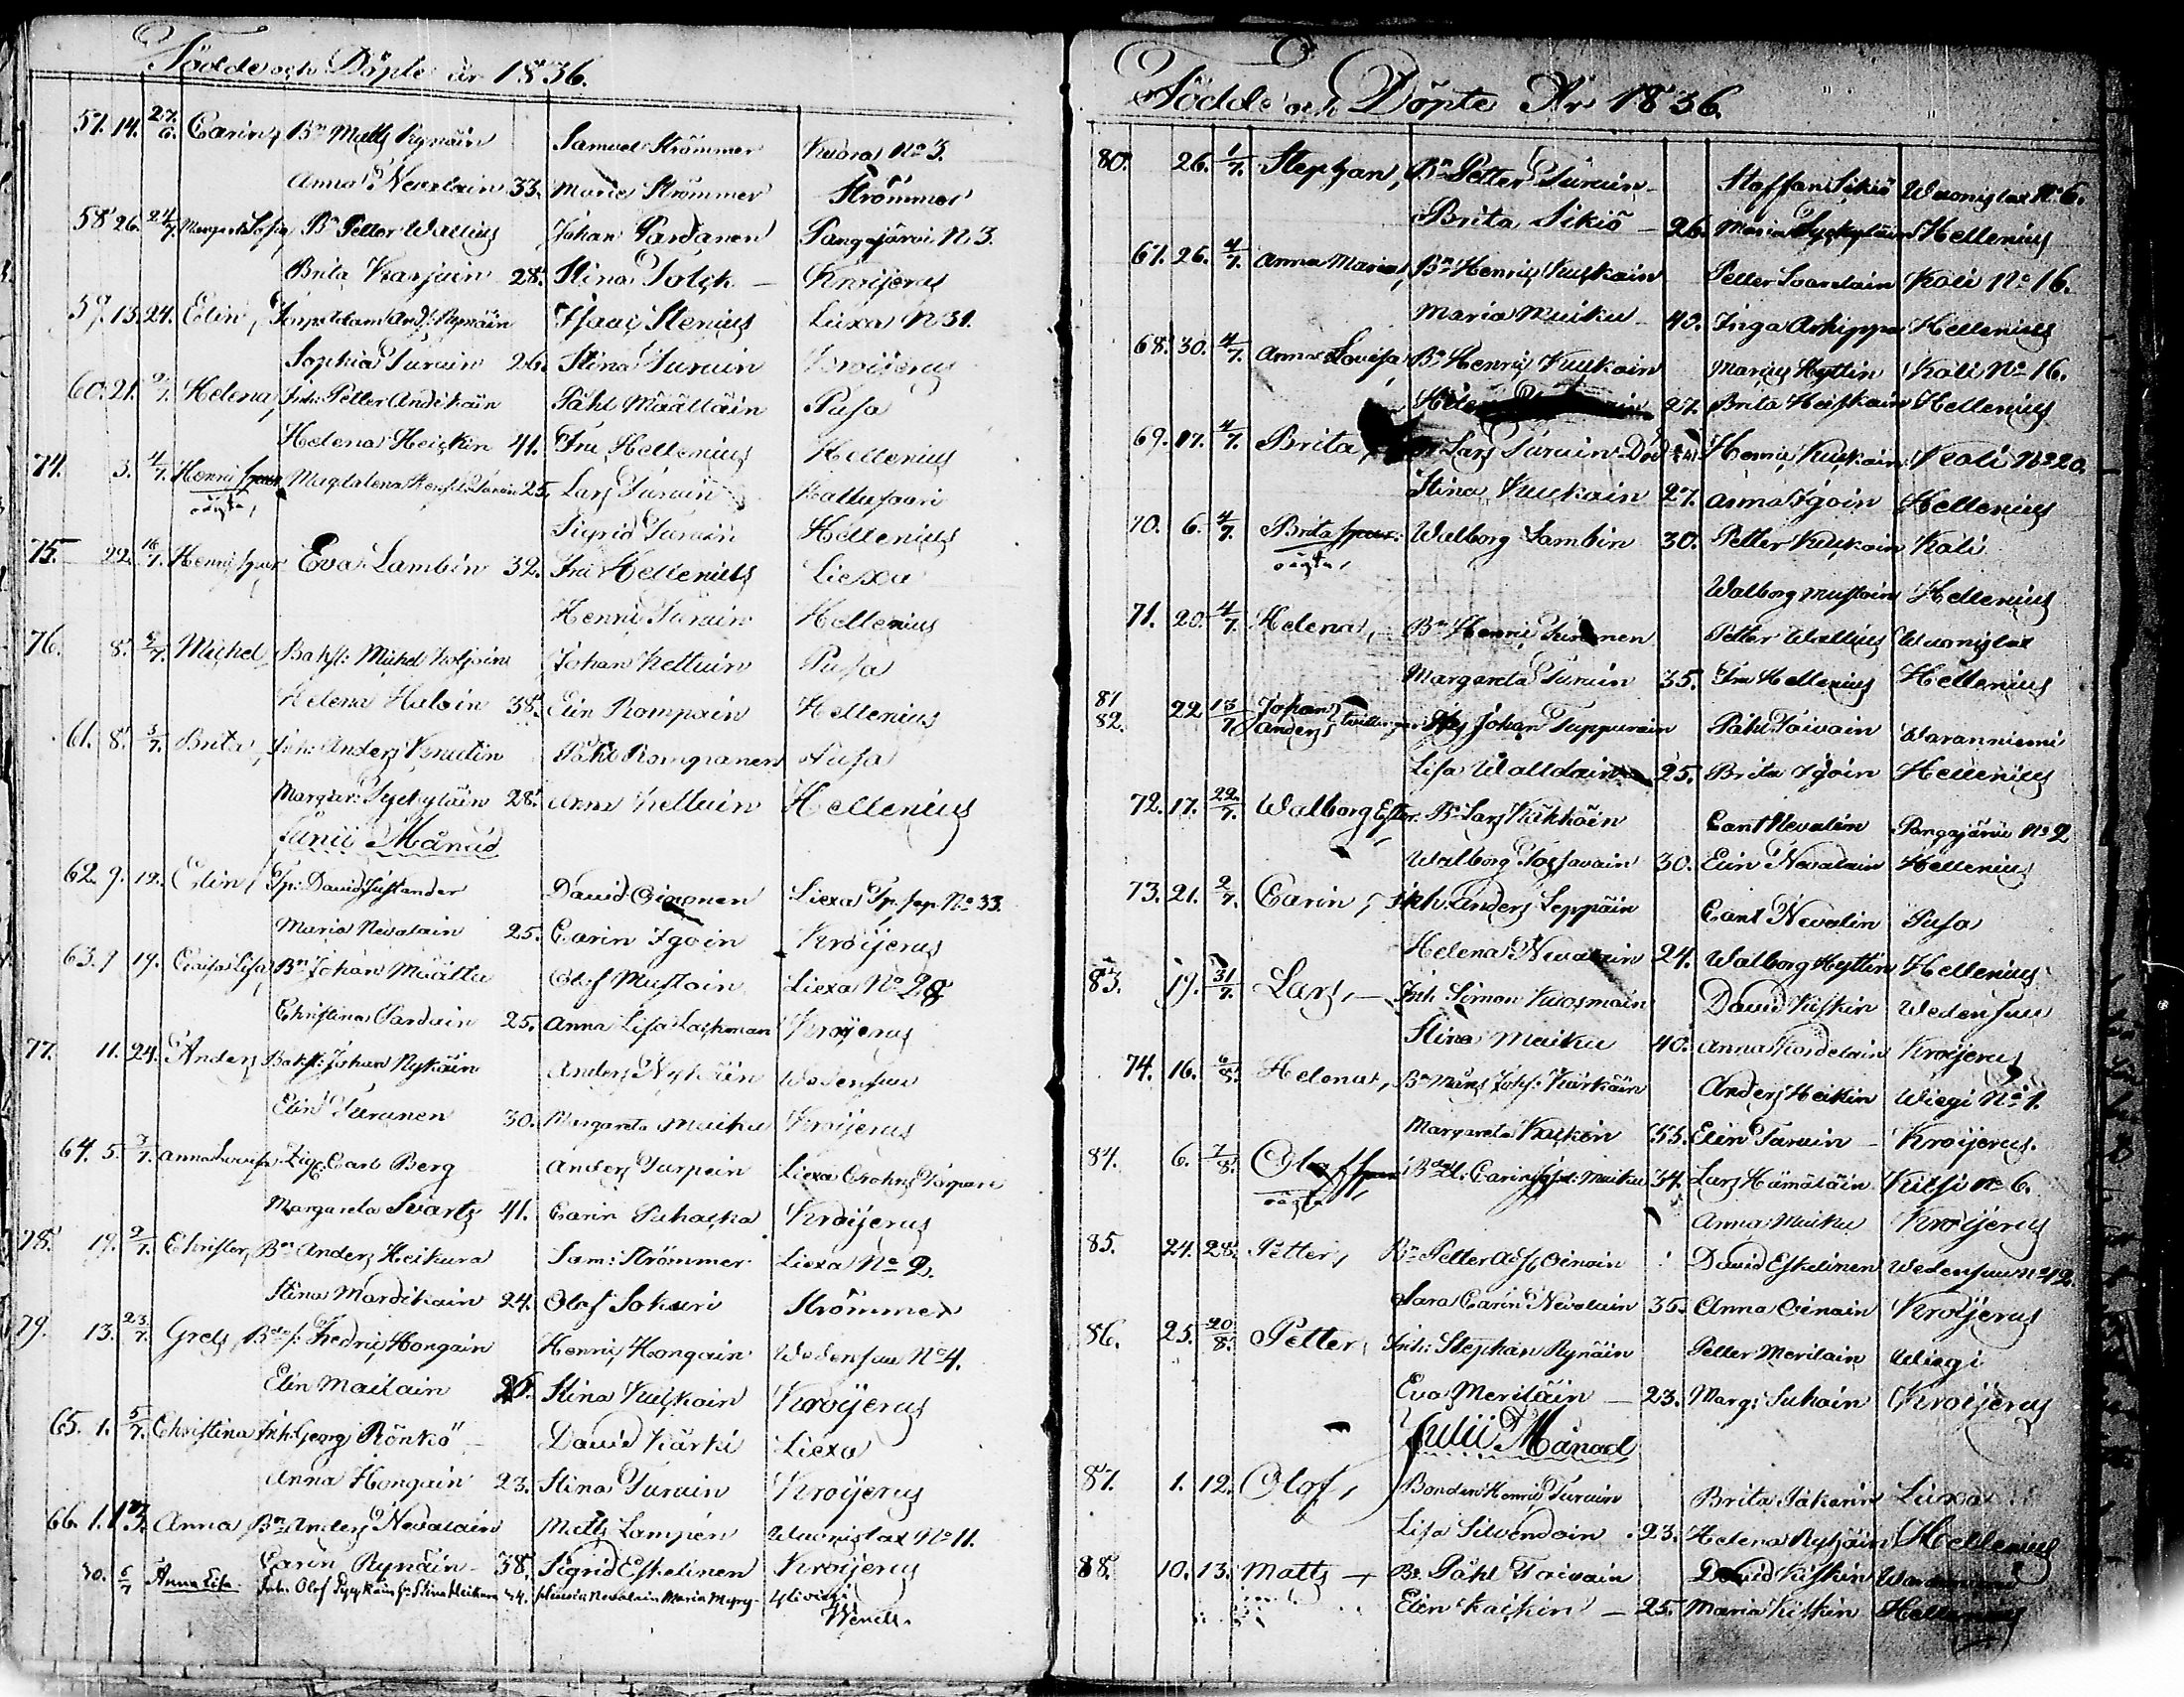 Födde och Döpte år 1836.
57. 14. 27/6. Carin, Bn Matts Rynäin Samuel Strömmer Kuora No 3.
Anna Nevalain 33. Maria Strömmer Strömmer
58. 26. 24/7. Margareta Sofia Bn Petter Wallius Johan Pardanen Pangajärvi N. 3.
Brita Karjain 28. Stina Kroijerus
59. 15. 24. Elin, Anders Rynäin Isaac Stenius Liexa N 31.
Sophia Turuin 26. Stina Turuin Kroijerus
60. 21. Helena, Inh: Petter Påhl Määttäin Pusa
Helena Heiskin 41. Fru Hellenius Hellenius
74. 3. 4/7. Henric Magdalena Turuin 25. Lars Turuin Kattusaari
oägta, Sigrid Turuin Hellenius
75. 22. 16/7. Henric Eva Lambin 32. Fru Hellenius Liexa
Henric Turuin Hellenius
76. 8. 4/7. Michel, Bakst: Michel Johan Kettuin Pusa
Helena Haloin 38. Elin Rompain Hellenius
61. 8. 3/7. Brita, Inh: Anders Knutin Påhl Rompanen Pusa
Margar: 28. Anna Kettuin Hellenius
Junii Månad
62. 9. 12. Elin, Tp: David Justander David Oinonen Liexa Tp. No 33.
Maria Nevalain 25. Carin Igoin Kroijerus
63. 9 19. Caisa Lisa, Bn Johan Määtta Olof Mustoin Liexa No 28
Christina Parduin 25. Anna Lisa Lackman Kroijerus
77. 11. 24. Anders Bakst: Johan Nykäin Anders Nykäin Wedensuu
Elin Turunen 30. Margareta Muiku Kroijerus
64. 5. 3/7. Anna Lovisa Carl Berg Anders Turpein Liexa Crohns
Margareta Svartz 41. Carin Puhacka Kroijerus
78. 19. 9/7. Christer, Bn Anders Heikura Sam: Strömmer Liexa No 2.
Stina Mardikain 24. Olof Sokuri Strömmer
79. 13. 23/7. Grels, Fredric Hongain Henric Hongain Wedensuu No 4.
Elin Mailain 26. Stina Kuiskain Kroijerus
65. 1. 5/7. Christina Inh: Georg Rönkö David Kärki Liexa
Anna Hongain 23. Stina Turuin Kroijerus
66. 1. Anna Bn Anders Nevalain Matts Lampén Wuonislax No 11.
Carin Rynäin 38. Sigrid Eskelinen Kroijerus
30. 6/7 Anna Lisa. Inh. Olof Stina Heikura 34. Nevalain Maria
Wendt.
Födde och Döpte År 1836.
80. 26. 1/7. Stephan, Bn Petter Turuin Staffan Sikiö Wuonislax No 6.
Brita Sikiö 26. Maria Hellenius
67. 26. 4/7. Anna Maria, Bn Henric Kuiskain Petter Koli No 16.
Maria Muiku 40. Inga Arhippa Hellenius
68. 30. 4/7. Anna Lovisa, Bn Henric Kuiskain Marcus Hyttin Koli No 16.
27. Brita Heiskain Hellenius
69. 17. 4/7. Brita, Lars Turuin Henric Kuiskain Koli No 20.
Stina Kuiskain 27. Anna Igoin Hellenius
70. 6. 4/7. Brita Walborg Lambin 30. Petter Kuiskain Koli
oägta, Walborg Mustoin Hellenius
71. 20. 4/7. Helena, Bn Henric Turunen Petter Wallius Wuonislax
Margareta Turuin 35. Fru Hellenius Hellenius
81 82. 22 13/7 Johan Anders Johan Tuppurain Påhl Toivain Waranniemi
Lisa 25. Brita Igoin Hellenius
72. 17. 22/7. Walborg Ester, Bn Lars Käkköin Carl Nevalin Pangajärvi No 2
Walborg Tossavain 30. Elin Nevalain Hellenius
73. 21. 2/7. Carin, Inh. Anders Leppäin Carl Nevalin Pusa
Helena Nevalain 24. Walborg Hyttin Hellenius
83. 19. 31/7. Lars, Inh Simon Kuosmain David Kiskin Wedensuu
Stina Muiku 40. Anna Kroijerus
74. 16. 6/8. Helena, Bn Måns Johs: Kärkäin Anders Heikin Wiegi No 1.
Margareta 35. Elin Turuin Kroijerus.
84. 6. 7/8. Olof Carin Muiku 34. Lars Hämäläin Kuisi No 6.
oägta Anna Muiku Kroijerus
85. 24. 28. Petter, Bn Petter Oinoin David Eskelinen Wedensuu No 12.
Sara Carin Nevalain 35. Anna Oinain Kroijerus
86. 25. 20/8. Petter, Inh: Stephan Rynäin Petter Merilain Wiegi
Eva Meriläin 23. Marg: Suhoin Kroijerus
Julii Månad
87. 1. 12. Olof, Bonden Henric Turuin Brita Liexa
Lisa Silvendoin 23. Helena Hellenius
88. 10. 13. Matts Bn Påhl Toivain David Kiskin
Elin Kaiskin 25. Maria Kiskin Hellenius